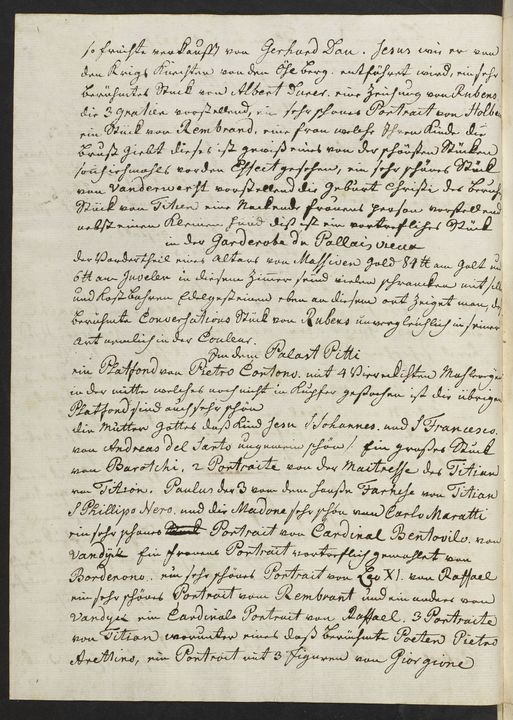 so früchte verkaufft von Gerhard Dau. Jesus wie er von
den Krigs Knechten von den Öhlberg. entführt wird, ein sehr
berühmtes Stuck von Albert Durer. eine Zeichung von Rubens
die 3 gratien vorstellend, ein sehr schones Portrait von Holbe
ein Stück von Rembrand, eine frau welche Ihren Kinde die
Brust giebt dieses ist gewiß eines von der schönsten Stücken
so ich jehmahls vor den Effect gesehen, ein sehr schönes Stück
von Vanderwerft vorstellend die geburt Christi des berühm
Stück von Titien eine Nackende frauens person vorstellend
nebst einen Kleinen hund diß ist ein vortrefliches Stück
in der Garderobe du Pallais vieux
der Vordertheil eines Altars von Massiven gold 84 ℔ am golt u
6 ℔ am Juvelen in diesem Zimer seind vielen schrancken mit silb
und kostbahren Edelgesteinen eben an diesem ort Zeiget man, das
berühmte Conversations Stück von Rubens unvergleichlich in seiner
Art nemlich in der Couleur.
In dem Palast Pitti
ein Platfond von Pietro Cortono. mit 4
in der mitte welches noch nicht in Kupfer gestochen ist die übrigen
Platfond sind auch sehr schön
die Mutter Gottes daß Kind Jesu S Johannes. und S Francesco.
von Andreas del Sarto ungemein schön / Ein großes Stück
von Barotchi, 2 Portraite von der Maitresse des Titian
von Titian. Paulus der 3 von dem hauße Farnese von Titian
S Phillippo Nero. und die Madona sehr schön von Carlo Maratti
ein sehr schönes Portrait von Cardinal Bentovilo. von
Vandÿk Ein frauens Portrait vortreflich gemahlet von
Bordenono. ein sehr schönes Portrait von Leo XI. von Raffael
ein sehr schönes Portrait von Rembrant und ein anders von
Vandyk ein Cardinals Portrait von Raffael. 3 Portraite
von Titian worunter eines daß berühmte Poeten Pietro
Arettino, ein Portrait mit 3 figuren von Giorgione